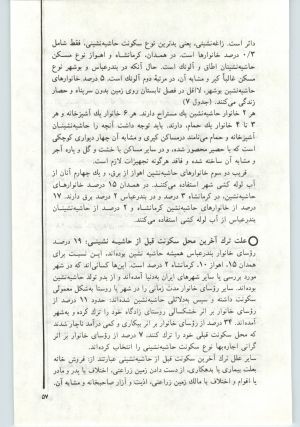 دائر است. زاغه‌نشینی، یعنی بدترین نوع سکونت حاشیه‌نشینی، فقط شامل
۰/۳ درصد خانوارها است. در همدان، کرمانشاه و اهواز نوع مسکن
حاشیه‌نشینان اطاق و آلونك است. حال آنکه در بندرعباس و بوشهر نوع
مسکن غالباً کپر و مشابه آن، در مرتبهٔ دوم آلونك است. ۵ درصد خانوارهای
حاشیه‌نشین بوشهر، لااقل در فصل تابستان روی زمین بدون سرپناه و حصار
زندگی می‌کنند. (جدول ۷)
هر ۲ خانوار حاشیه‌نشین یك مستراح دارند. هر ۶ خانوار یك آشپزخانه و هر
۳ تا ۴ خانوار یك حمام، دارند. باید توجه داشت آنچه را حاشیه‌نشینان
آشپزخانه و حمام می‌نامند درمساکن کپری و مشابه آن چهار دیواری کوچکی
است که با حصیر محصور شده، و در سایر مساکن با خشت و گل و پاره آجر
و مشابه آن ساخته شده و فاقد هرگونه تجهیزات لازم است.
قریب دو سوم خانوارهای حاشیه‌نشین اهواز از برق، و یك چهارم آنان از
آب لوله کشی شهر استفاده می‌کنند. در همدان ۱۵ درصد خانوارهای
حاشیه‌نشین، در کرمانشاه ۳ درصد و در بندرعباس ۲ درصد برق دارند. ۱۷
درصد از خانوارهای حاشیه‌نشین کرمانشاه و ۲ درصد از حاشیه‌نشینان
بندرعباس از آب لوله کشی استفاده می‌کنند.
علت ترك آخرین محل سکونت قبل از حاشیه نشینی: ۱۹ درصد
رؤسای خانوار بندرعباس همیشه حاشیه نشین بوده‌اند، این نسبت برای
همدان ۱۵، اهواز ۱۰، کرمانشاه ۲ درصد است. اینها کسانی‌اند که در شهر
مورد بررسی یا سایر شهرهای ایران بدنیا آمده‌اند و از بدو تولد حاشیه‌نشین
بوده‌اند. سایر رؤسای خانوار مدت زمانی را در شهر یا روستا به‌شکل معمولی
سکونت داشته و سپس به‌دلائلی حاشیه‌نشین شده‌اند: حدود ۱۱ درصد از
رؤسای خانوار بر اثر خشکسالی روستای زادگاه خود را ترك کرده و به‌شهر
آمده‌اند. ۳۴ درصد از رؤسای خانوار بر اثر بیکاری و کمی درآمد ناچار شدند
که محل سکونت قبلی خود را ترك کنند. ۷ درصد از رؤسای خانوار بر اثر
گرانی اجاره‌بها نوع سکونت حاشیه‌نشینی را انتخاب کرده‌اند.
سایر علل ترك آخرین محل سکونت قبل از حاشیه‌نشینی عبارتند از: فروش خانه
بعلت بیماری یا بدهکاری، از دست دادن زمین زراعتی، اختلاف با پدر و مادر
یا اقوام و اختلاف با مالك زمین زراعتی، اذیت و آزار صاحبخانه و مشابه آن.
۵۷